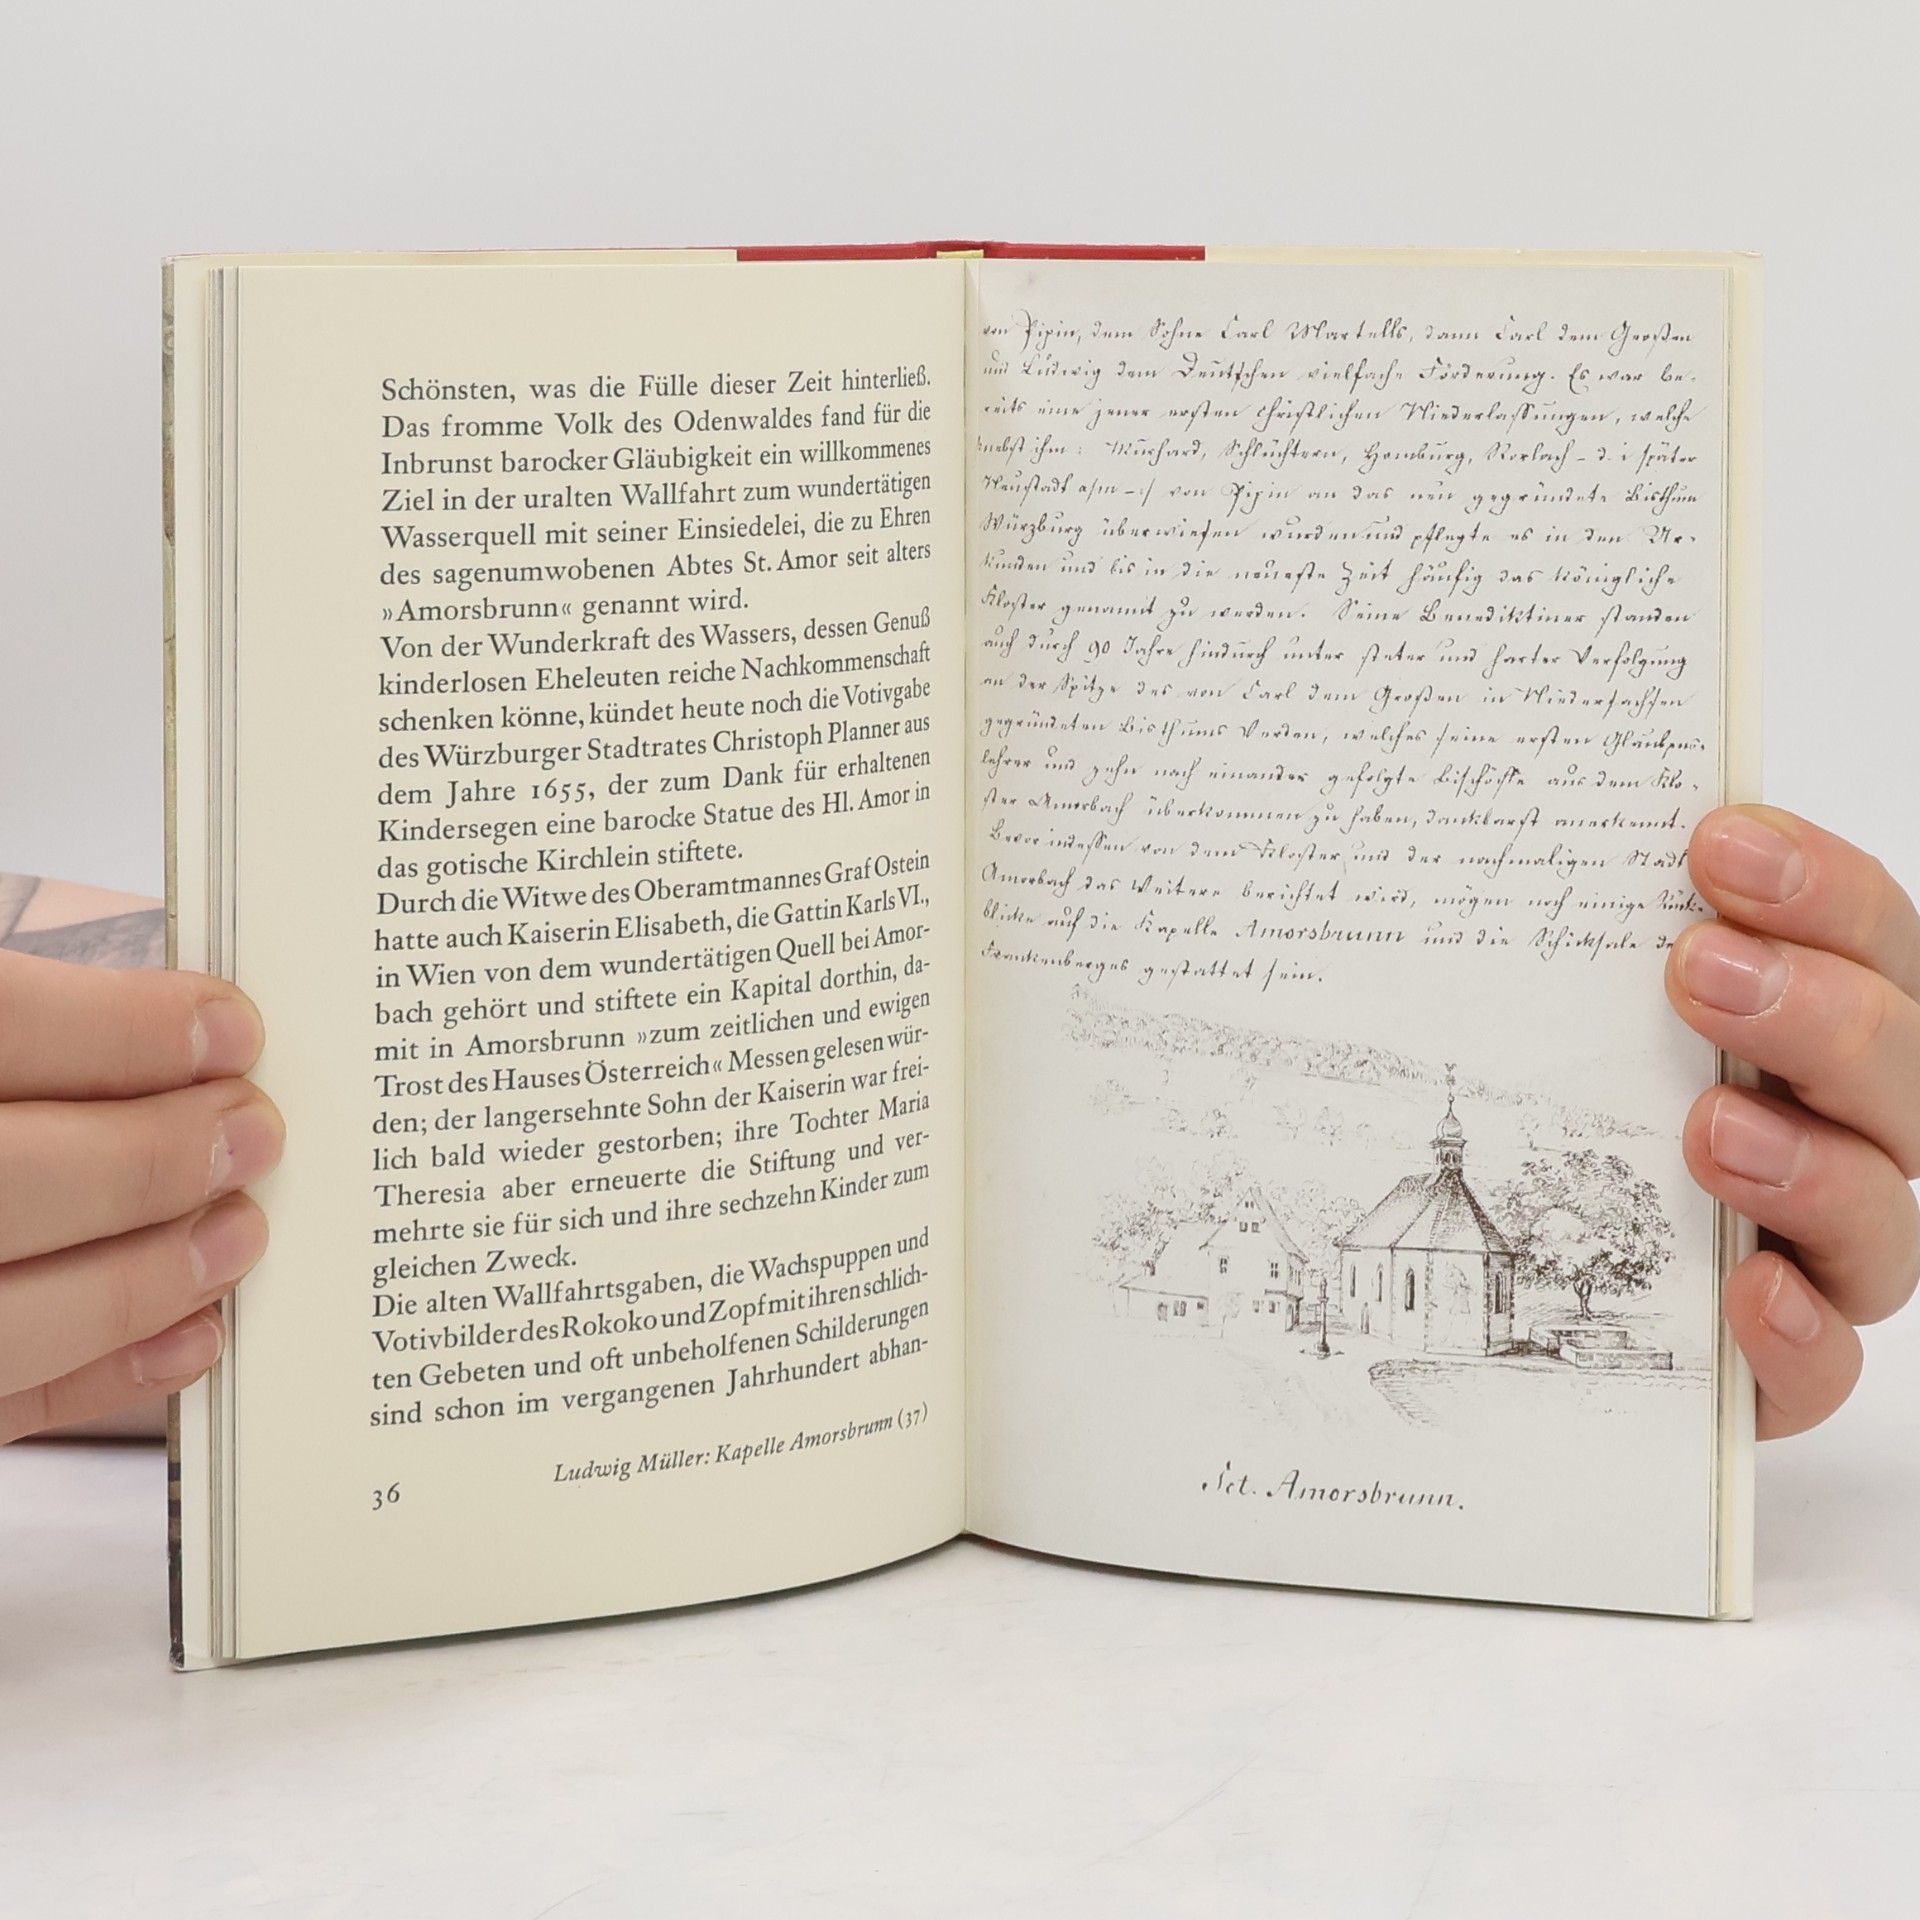 Schönsten, was die Fülle dieser Zeit hinterließ.
Das fromme Volk des Odenwaldes fand für die
Inbrunst barocker Gläubigkeit ein willkommenes
Ziel in der uralten Wallfahrt zum wundertätigen
Wasserquell mit seiner Einsiedelei, die zu Ehren
des sagenumwobenen Abtes St. Amor seit alters
»Amorsbrunn« genannt wird.
Von der Wunderkraft des Wassers, dessen Genuß
kinderlosen Eheleuten reiche Nachkommenschaft
schenken könne, kündet heute noch die Votivgabe
des Würzburger Stadtrates Christoph Planner aus
dem Jahre 1655, der zum Dank für erhaltenen
Kindersegen eine barocke Statue des Hl. Amor in
das gotische Kirchlein stiftete.
Durch die Witwe des Oberamtmannes Graf Ostein
hatte auch Kaiserin Elisabeth, die Gattin Karls VI.,
in Wien von dem wundertätigen Quell bei Amor-
bach gehört und stiftete ein Kapital dorthin, da-
mit in Amorsbrunn »zum zeitlichen und ewigen
Trost des Hauses Österreich« Messen gelesen wür-
den; der langersehnte Sohn der Kaiserin war frei-
lich bald wieder gestorben; ihre Tochter Maria
Theresia aber erneuerte die Stiftung und ver-
mehrte sie für sich und ihre sechzehn Kinder zum
gleichen Zweck.
Die alten Wallfahrtsgaben, die Wachspuppen und
Votivbilder des Rokoko und Zopf mit ihren schlich-
ten Gebeten und oft unbeholfenen Schilderungen
sind schon im vergangenen Jahrhundert abhan-
Ludwig Müller: Kapelle Amorsbrunn (37)
36
von Pipin, dem Sohne Carl Martells, dann Carl dem Großen
und Ludwig dem Deutschen vielfache Förderung. Es war be-
reits eine jener ersten christlichen Niederlassungen, welche
nebst ihm: Murhard, Schlüchtern, Homburg, Rorlach – d. i später
Neustadt a/m –:/ von Pipin an das neu gegründete Bisthum
Würzburg überwiesen wurden und pflegte es in den Ur-
kunden und bis in die neueste Zeit häufig das königliche
Kloster genannt zu werden. Seine Benediktiner standen
auch durch 90 Jahre hindurch unter steter und harter Verfolgung
an der Spitze des von Carl dem Großen in Niedersachsen
gegründeten Bisthums Verden, welches seine ersten Glaubens-
lehrer und zehn nach einander gefolgte Bischöffe aus dem Klo-
ster Amorbach überkommen zu haben, dankbarst anerkennt.
Bevor indessen von dem Kloster und der nachmaligen Stadt
Amorbach das Weitere berichtet wird, mögen noch einige Rück-
blicke auf die Kapelle Amorsbrunn und die Schicksale
Frankenberges gestattet sein.
Sct. Amorsbrunn.